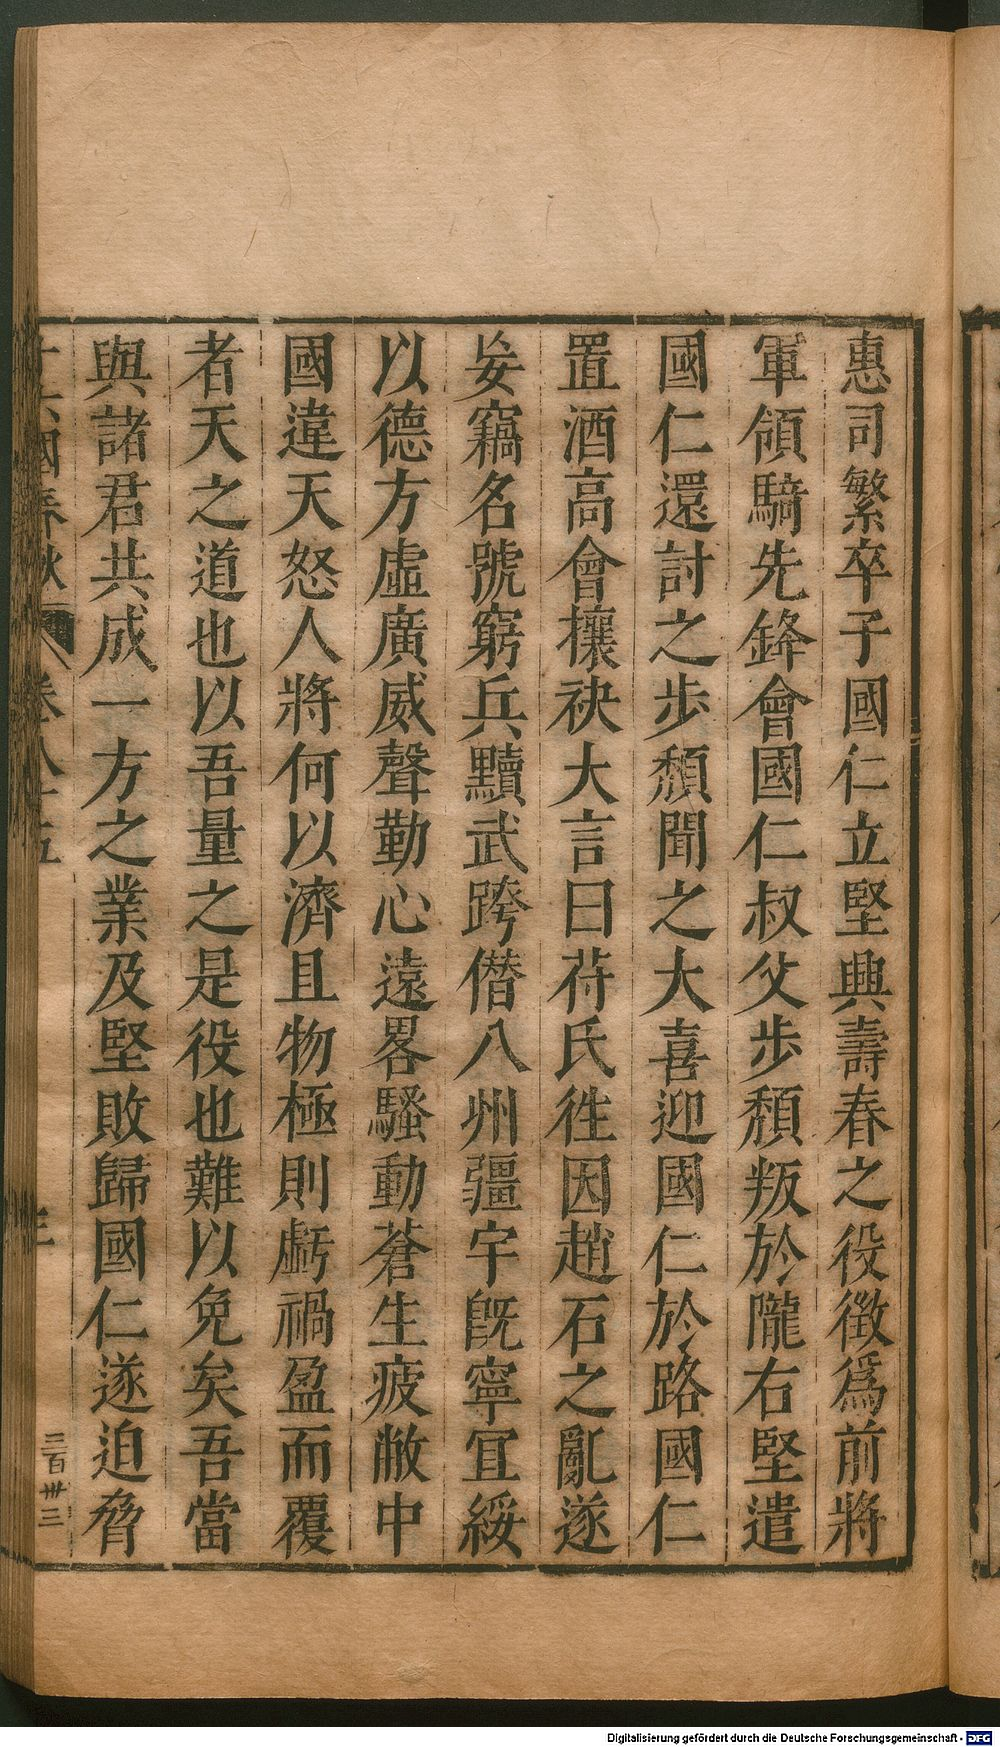 惠司繁卒子國仁立堅興壽春之役徵爲前將
軍領騎先鋒會國仁叔父步頹叛於隴右堅遣
國仁還討之步頹聞之大喜迎國仁於路國仁
置酒高會攘袂大言曰苻氏徃因趙石之亂遂
妄竊名號窮兵黷武跨僭八州疆宇旣寧宜綏
以德方虛廣威聲勤心遠畧騷動蒼生疲敝中
國違天怒人將何以濟且物極則虧禍盈而覆
者天之道也以吾量之是役也難以免矣吾當
與諸君共成一方之業及堅敗歸國仁遂迫脅
十六國春秋 卷八十五 三
三百卅三
Digitalisierung gefördert durch die Deutsche Forschungsgemeinschaft - DFG